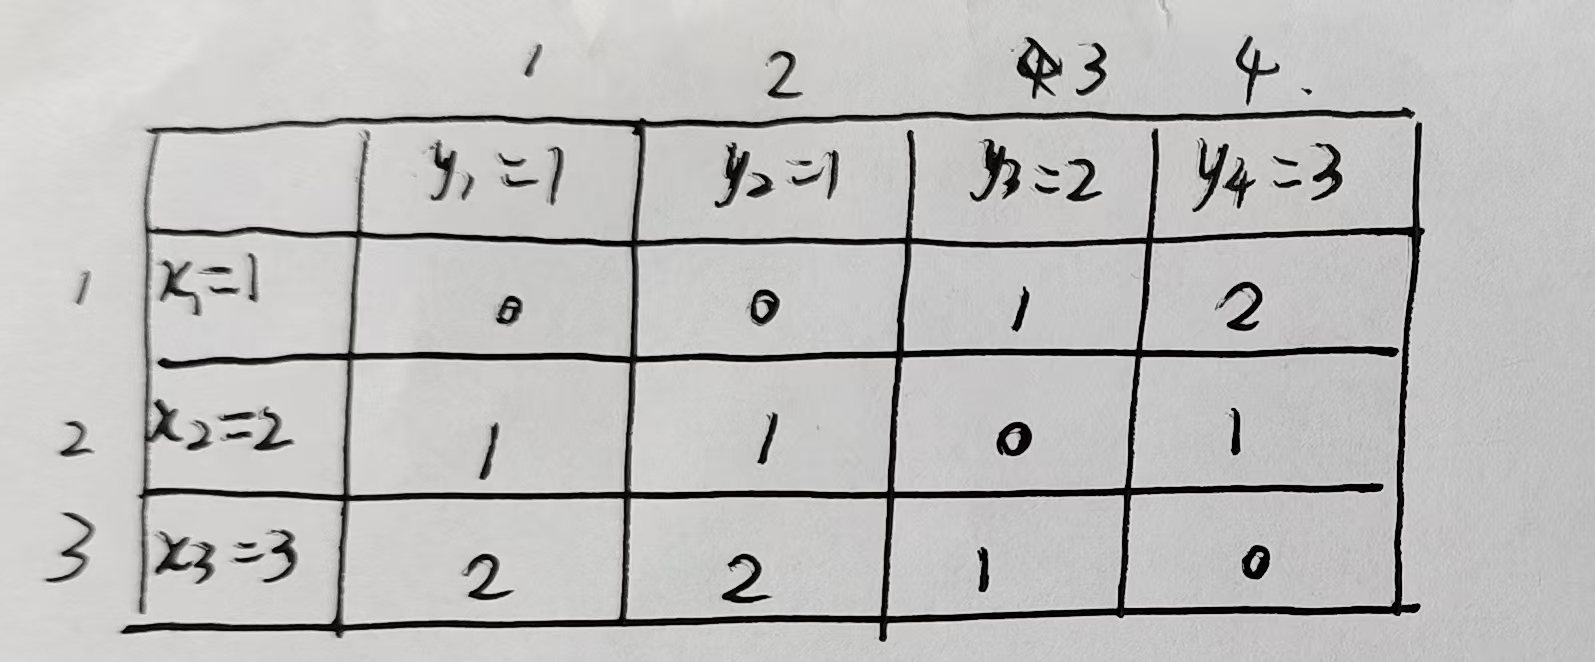 1 2 3 4.
y₁=1 y₂=1 y₃=2 y₄=3
1 x₁=1 0 0 1 2
2 x₂=2 1 1 0 1
3 x₃=3 2 2 1 0